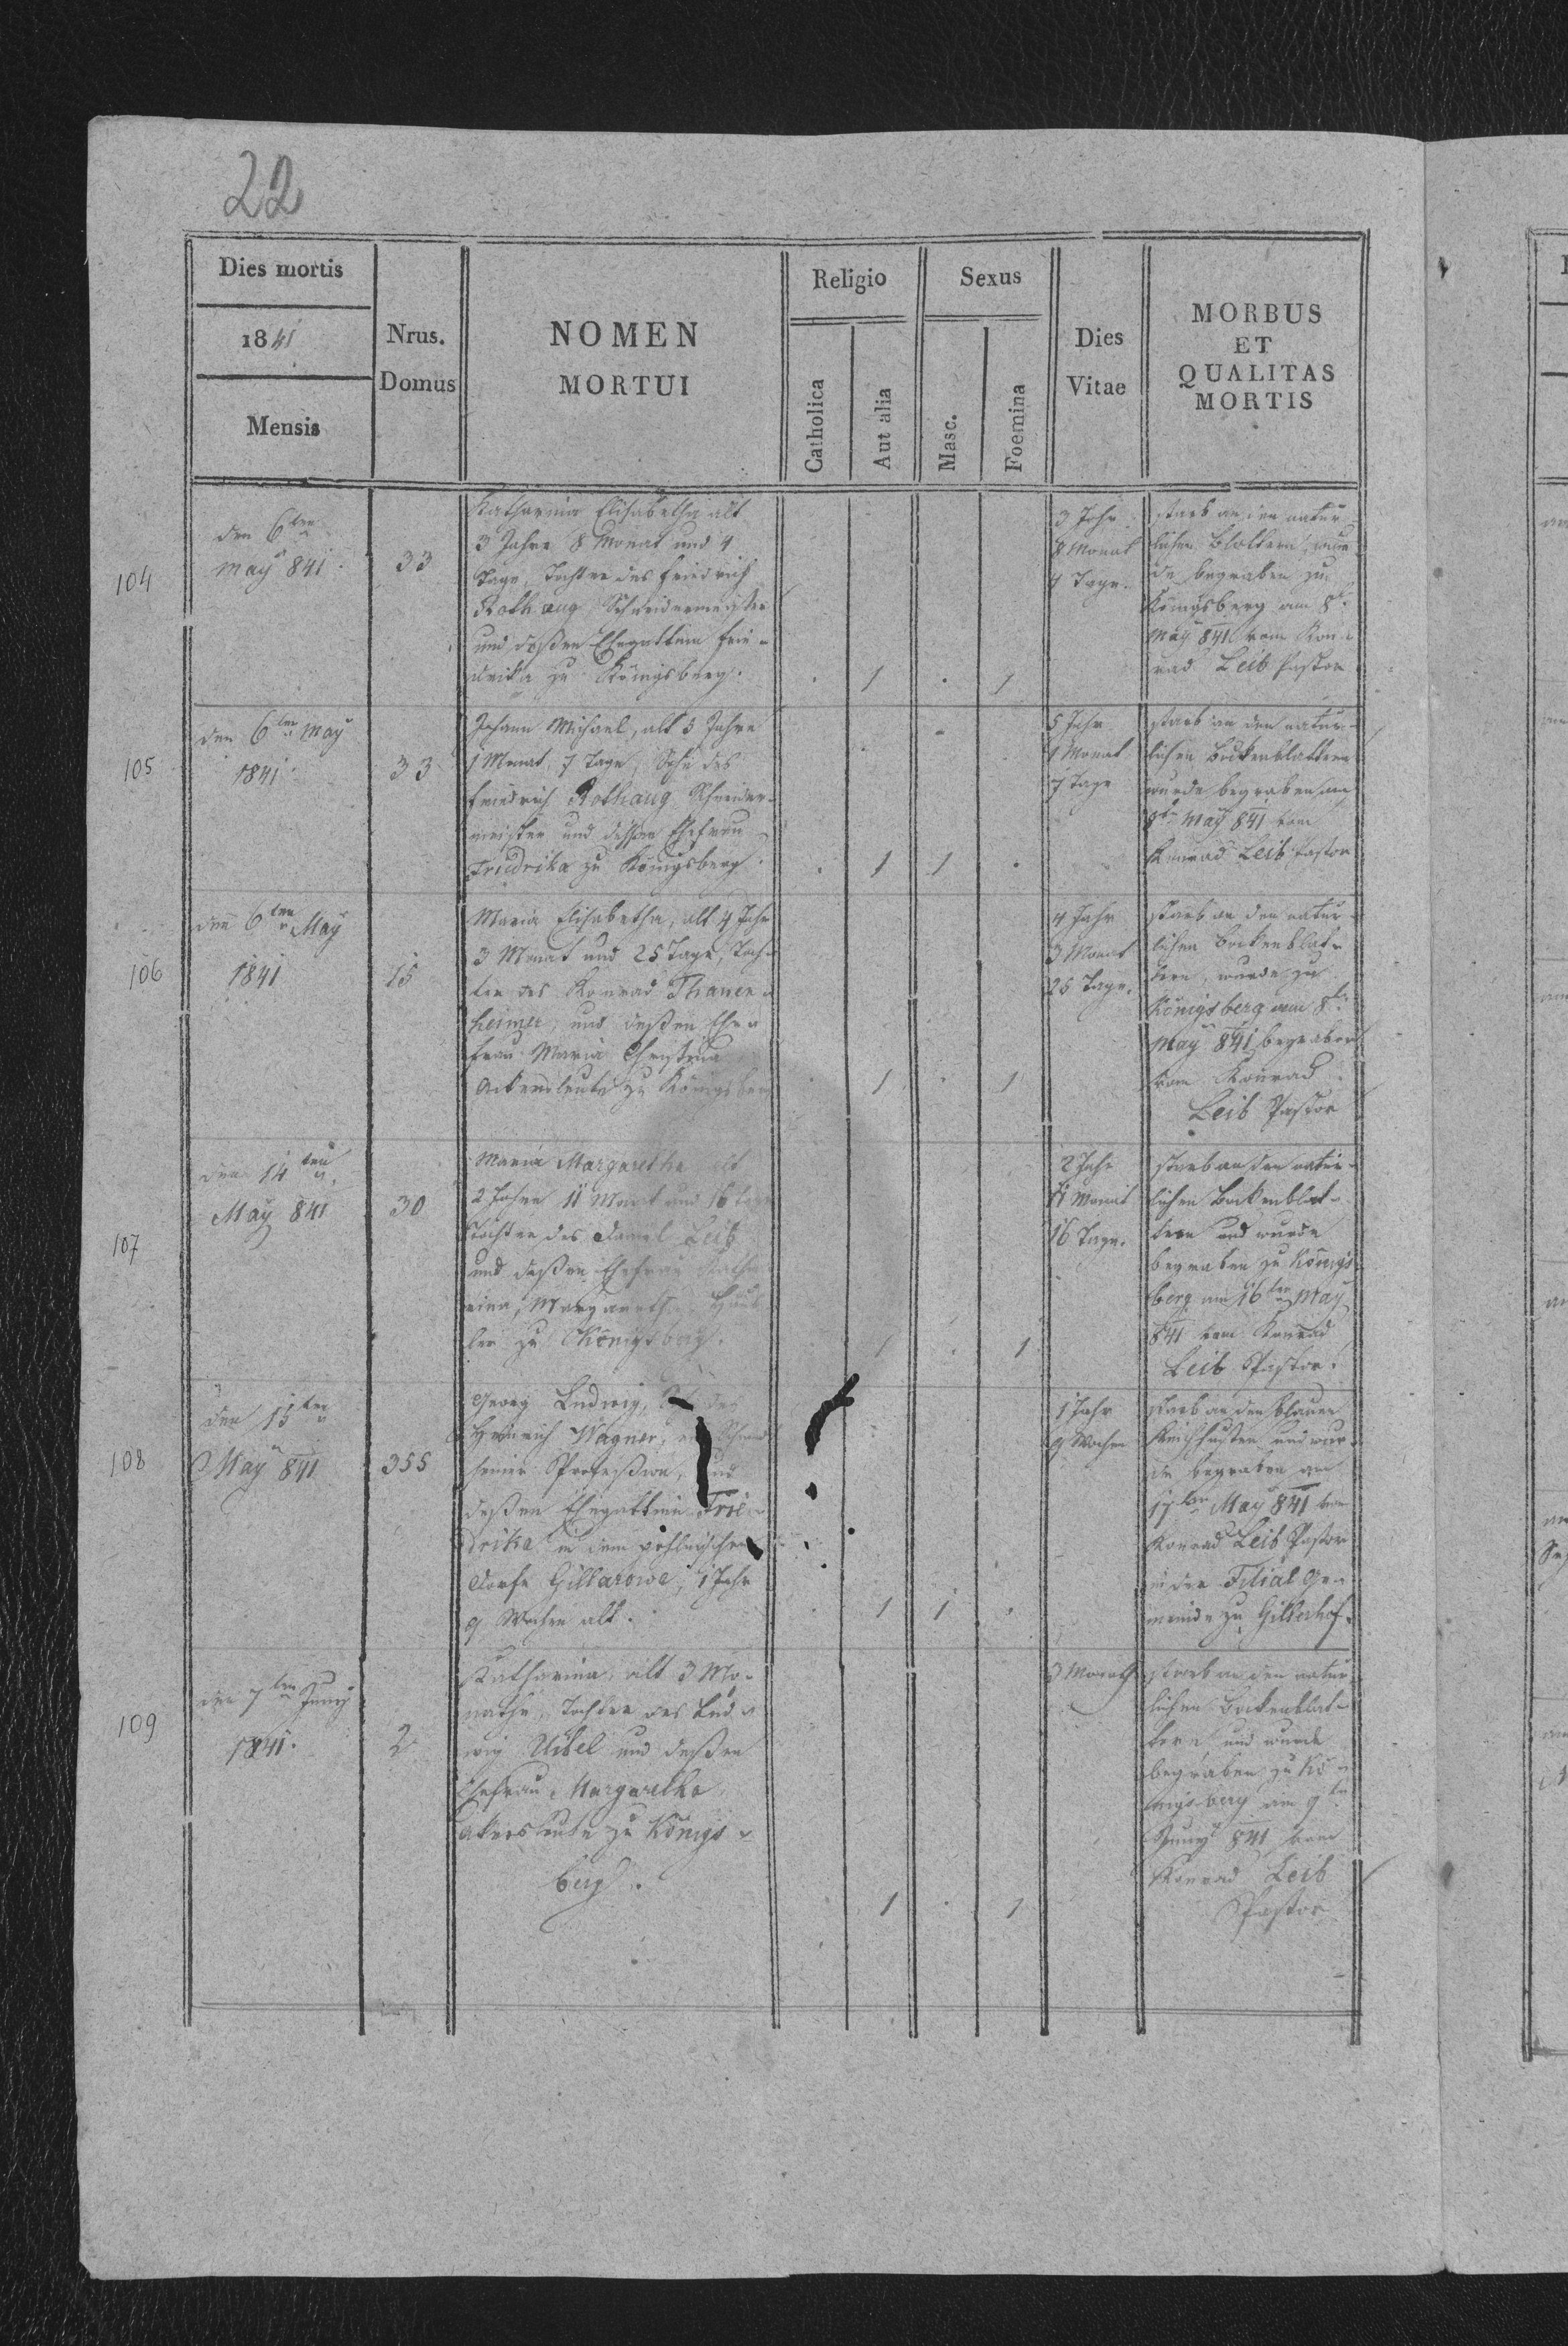 22
Dies mortis
1841
Mensis
Nrus.
Domus
NOMEN
MORTUI
Religio
Catholica
Aut alia
Sexus
Masc.
Foemina
Dies
Vitae
MORBUS
ET
QUALITAS
MORTIS
104
den 6ten
May 841.
33
Katharina Elisabetha alt
3 Jahre 8 Monat und 4
Tage, Tochter des Friedrich
Rothaug Schneidermeister
und deßen Ehegattin Frie-
drika zu Königsberg.
1
1
3 Jahr
8 Monat
4 Tage.
starb an den natür-
lichen Blattern, wur-
de begraben zu
Königsberg am 8t.
May 841 vom Kon-
rad Leib Pastor
105
den 6ten May
1841.
33
Johann Michael, alt 5 Jahre
1 Monat, 7 Tage, Sohn des
Friedrich Rothaug Schneider-
meister und dessen Ehefrau
Friedrika zu Königsberg.
1
1
5 Jahr
1 Monat
7 Tage
starb an den natür-
lichen Bockenblattern
wurde begraben am
8t. May 841 vom
Konrad Leib Pastor
106
den 6ten May
1841
15
Maria Elisabetha, alt 4 Jahr
3 Monat und 25 Tage, Toch-
ter des Konrad Thanen-
heimer, und deßen Ehe-
frau Maria Christina
Ackersleute zu Königsberg
1
1
4 Jahr
3 Monat
25 Tage.
starb an den natür-
lichen Bockenblat-
tern, wurde zu
Königsberg am 8t.
May 841 begraben
vom Konrad
Leib Pastor
107
den 14ten
May 841
30
Maria Margaretha alt
2 Jahre 11 Monat und 16 Tage
Tochter des Daniel Leib
und deßen Ehefrau Katha
rina, Margaretha Häus
ler zu Königsberg.
1
1
2 Jahr
11 Monat
16 Tage.
starb an den natür-
lichen Bockenblat-
tern und wurde
begraben zu Königs
berg am 16ten May
841 vom Konrad
Leib Pastor.
108
den 15ten
May 841
355
Georg Ludwig, des
Heinrich Wagner, ein
seiner Profeßion, und
deßen Ehegattin Frie-
drika in dem pohlnischen
Dorfe Gillarowa, 1 Jahr
9 Wochen alt.
1
1
1 Jahr
9 Wochen
starb an den blauen
Keichhusten und wur-
de begraben am
17ten May 841 vom
Konrad Leib Pastor
in der Filial Ge-
meinde zu Gillershof.
109
den 7ten Juny
1841.
2
Katharina, alt 3 Mo-
nathe, Tochter des Lud-
wig Uibel und deßen
Ehefrau Margaretha
Akersleute zu Königs-
berg.
1
1
3 Monath
starb an den natür
lichen Bockenblat-
tern und wurde
begraben zu Kö-
nigsberg am 9ten
Juny 841 vom
Konrad Leib
Pastor